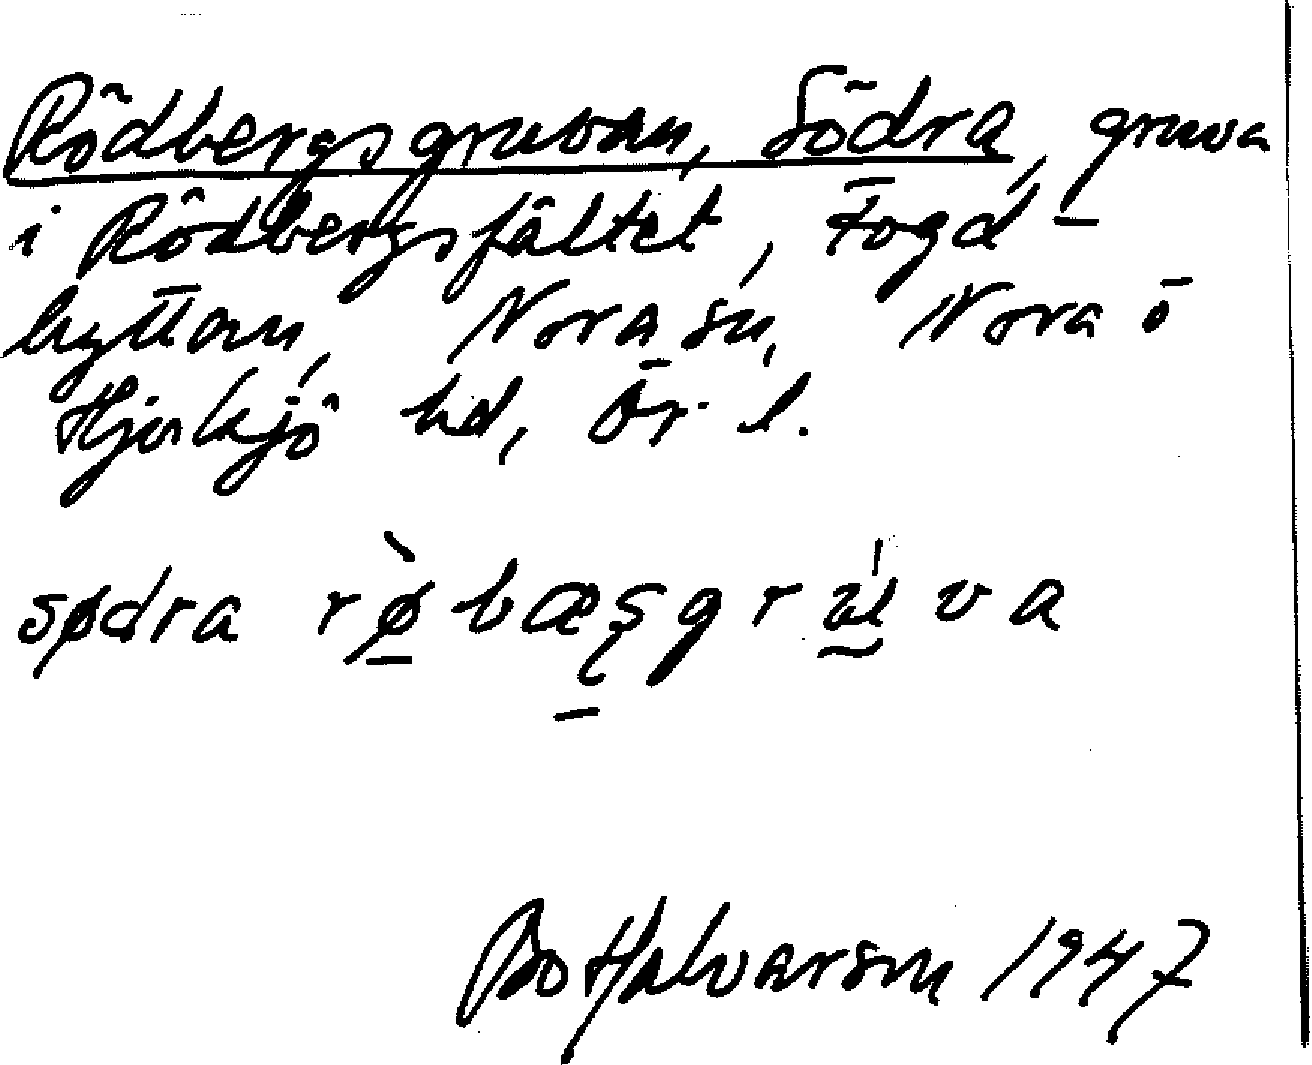 Rödbergsgruvan, Södra, gruva
i Rödbergsfältet, Fogd-
hyttan, Nora sn, Nora o
Hjulsjö hd, Ör. l.
sødra rø̠̀bæʂgrʉ̍va
Bo Halvarson 1947